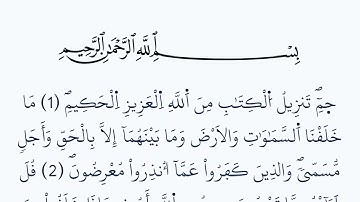 بِسْمِ اللَّهِ الرَّحْمَٰنِ الرَّحِيمِ
حمٓۖ تَنزِيلُ اُ۬لْكِتَٰبِ مِنَ اَ۬للَّهِ اِ۬لْعَزِيزِ اِ۬لْحَكِيمِۖ (1) مَا
خَلَقْنَا اَ۬لسَّمَٰوَٰتِ وَالَارْضَ وَمَا بَيْنَهُمَآ إِلَّا بِالْحَقِّ وَأَجَلٖ
مُّسَمّيٗۖ وَالذِينَ كَفَرُواْ عَمَّآ أُنذِرُواْ مُعْرِضُونَۖ (2) قُلَ